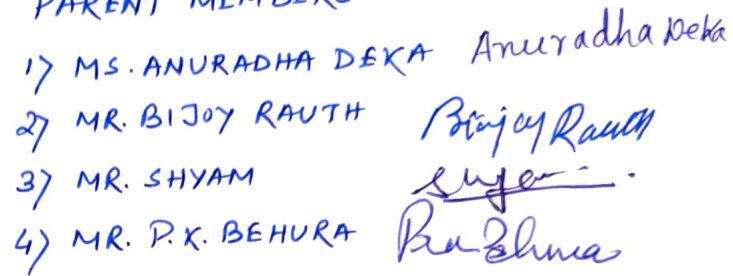 PARENT MEMBERS
1) MS. ANURADHA DEKA Anuradha Deka
2) MR. BIJOY RAUTH Binjoy Rauth
3) MR. SHYAM Shyam
4) MR. P.K. BEHURA